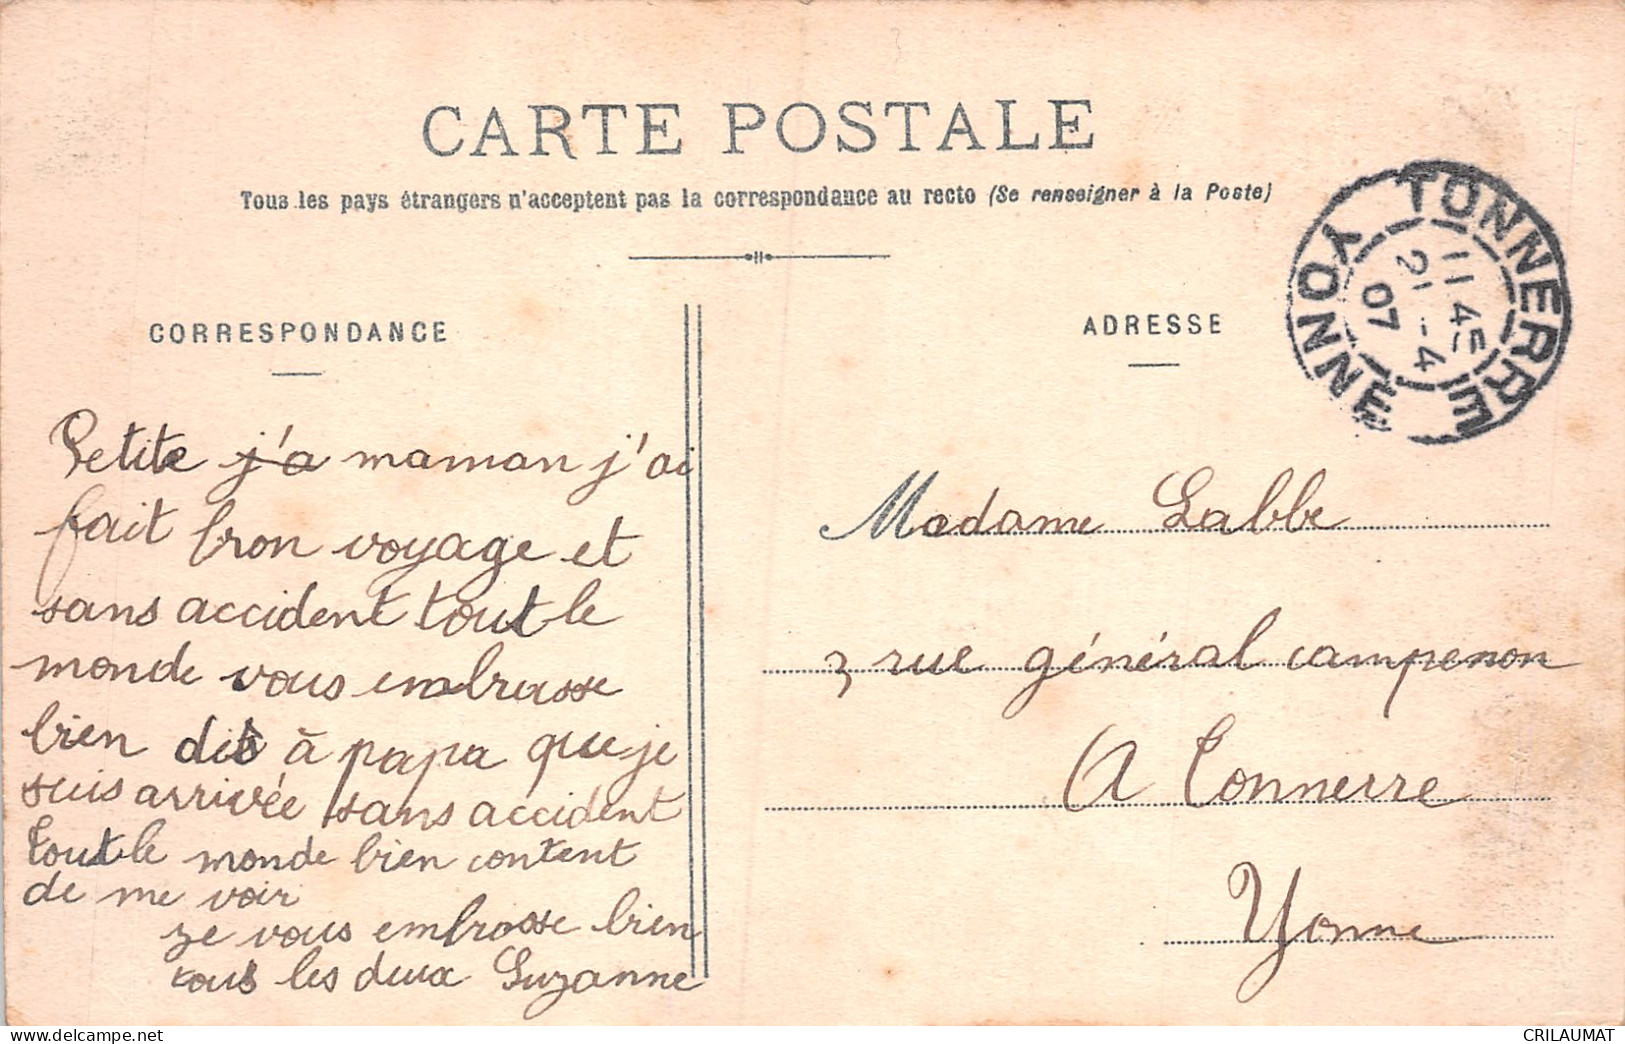 CARTE POSTALE
Tous les pays étrangers n'acceptent pas la correspondance au recto (Se renseigner à la Poste)
CORRESPONDANCE
ADRESSE
TONNERRE
YONNE
11 45
21 -4
07
Petite j'a maman j'ai
fait bron voyage et
sans accident tout le
monde vous embrasse
bien dis à papa que je
suis arrivée sans accident
tout le monde bien content
de me voir
je vous embrasse bien
tous les deux Suzanne
Madame Labbe
3 rue général campenon
A Tonnerre
Yonne
CRILAUMAT